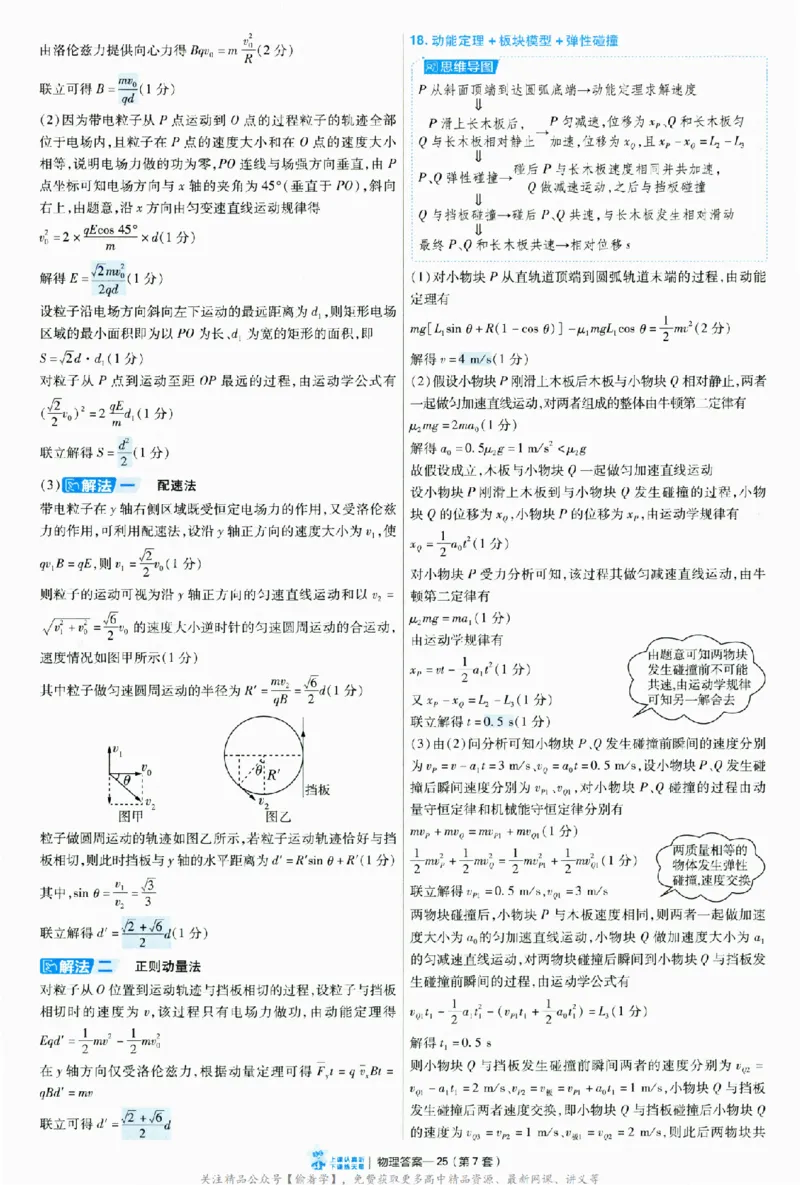 由洛伦兹力提供向心力得 Bqv₀ = m v₀²/R (2 分)
联立可得 B = mv₀/qd (1 分)
(2)因为带电粒子从 P 点运动到 O 点的过程粒子的轨迹全部
位于电场内,且粒子在 P 点的速度大小和在 O 点的速度大小
相等,说明电场力做的功为零,PO 连线与场强方向垂直,由 P
点坐标可知电场方向与 x 轴的夹角为 45°(垂直于 PO),斜向
右上,由题意,沿 x 方向由匀变速直线运动规律得
v₀² = 2 × qEcos 45°/m × d(1 分)
解得 E = √2mv₀²/2qd (1 分)
设粒子沿电场方向斜向左下运动的最远距离为 d₁,则矩形电场
区域的最小面积即为以 PO 为长、d₁ 为宽的矩形的面积,即
S = √2d · d₁(1 分)
对粒子从 P 点到运动至距 OP 最远的过程,由运动学公式有
(√2/2 v₀)² = 2 qE/m d₁(1 分)
联立解得 S = d²/2 (1 分)
(3) 解法一 配速法
带电粒子在 y 轴右侧区域既受恒定电场力的作用,又受洛伦兹
力的作用,可利用配速法,设沿 y 轴正方向的速度大小为 v₁,使
qv₁B = qE,则 v₁ = √2/2 v₀(1 分)
则粒子的运动可视为沿 y 轴正方向的匀速直线运动和以 v₂ =
√(v₁² + v₀²) = √6/2 v₀ 的速度大小逆时针的匀速圆周运动的合运动,
速度情况如图甲所示(1 分)
其中粒子做匀速圆周运动的半径为 R′ = mv₂/qB = √6/2 d(1 分)
v₁
v₀
θ
v₂
图甲
θ
R′
挡板
v₂
图乙
粒子做圆周运动的轨迹如图乙所示,若粒子运动轨迹恰好与挡
板相切,则此时挡板与 y 轴的水平距离为 d′ = R′sin θ + R′(1 分)
其中,sin θ = v₁/v₂ = √3/3
联立解得 d′ = (√2 + √6)/2 d(1 分)
解法二 正则动量法
对粒子从 O 位置到运动轨迹与挡板相切的过程,设粒子与挡板
相切时的速度为 v,该过程只有电场力做功,由动能定理得
Eqd′ = 1/2 mv² − 1/2 mv₀²
在 y 轴方向仅受洛伦兹力,根据动量定理可得 F̅ᵧt = q v̅ₓBt =
qBd′ = mv
联立可得 d′ = (√2 + √6)/2 d
18. 动能定理 + 板块模型 + 弹性碰撞
思维导图
P 从斜面顶端到达圆弧底端→动能定理求解速度
⇓
P 滑上长木板后,
Q 与长木板相对静止
→
P 匀减速,位移为 x_P、Q 和长木板匀
加速,位移为 x_Q,且 x_P − x_Q = L₂ − L₃
⇓
P、Q 弹性碰撞→
碰后 P 与长木板速度相同并共加速,
Q 做减速运动,之后与挡板碰撞
⇓
Q 与挡板碰撞→碰后 P、Q 共速,与长木板发生相对滑动
⇓
最终 P、Q 和长木板共速→相对位移 s
(1)对小物块 P 从直轨道顶端到圆弧轨道末端的过程,由动能
定理有
mg[L₁sin θ + R(1 − cos θ)] − μ₁mgL₁cos θ = 1/2 mv²(2 分)
解得 v = 4 m/s(1 分)
(2)假设小物块 P 刚滑上木板后木板与小物块 Q 相对静止,两者
一起做匀加速直线运动,对两者组成的整体由牛顿第二定律有
μ₂mg = 2ma₀(1 分)
解得 a₀ = 0.5μ₂g = 1 m/s² < μ₂g
故假设成立,木板与小物块 Q 一起做匀加速直线运动
设小物块 P 刚滑上木板到与小物块 Q 发生碰撞的过程,小物
块 Q 的位移为 x_Q,小物块 P 的位移为 x_P,由运动学规律有
x_Q = 1/2 a₀t²(1 分)
对小物块 P 受力分析可知,该过程其做匀减速直线运动,由牛
顿第二定律有
μ₂mg = ma₁(1 分)
由运动学规律有
x_P = vt − 1/2 a₁t²(1 分)
又 x_P − x_Q = L₂ − L₃(1 分)
联立解得 t = 0.5 s(1 分)
由题意可知两物块
发生碰撞前不可能
共速,由运动学规律
可知另一解舍去
(3)由(2)问分析可知小物块 P、Q 发生碰撞前瞬间的速度分别
为 v_P = v − a₁t = 3 m/s、v_Q = a₀t = 0.5 m/s,设小物块 P、Q 发生碰
撞后瞬间速度分别为 v_P1、v_Q1,对小物块 P、Q 碰撞的过程由动
量守恒定律和机械能守恒定律分别有
mv_P + mv_Q = mv_P1 + mv_Q1(1 分)
1/2 mv_P² + 1/2 mv_Q² = 1/2 mv_P1² + 1/2 mv_Q1²(1 分)
联立解得 v_P1 = 0.5 m/s,v_Q1 = 3 m/s
两质量相等的
物体发生弹性
碰撞,速度交换
两物块碰撞后,小物块 P 与木板速度相同,则两者一起做加速
度大小为 a₀ 的匀加速直线运动,小物块 Q 做加速度大小为 a₁
的匀减速直线运动,对两物块碰撞后瞬间到小物块 Q 与挡板发
生碰撞前瞬间的过程,由运动学公式有
v_Q1t₁ − 1/2 a₁t₁² − (v_P1t₁ + 1/2 a₀t₁²) = L₃(1 分)
解得 t₁ = 0.5 s
则小物块 Q 与挡板发生碰撞前瞬间两者的速度分别为 v_Q2 =
v_Q1 − a₁t₁ = 2 m/s、v_P2 = v_板 = v_P1 + a₀t₁ = 1 m/s,小物块 Q 与挡板
发生碰撞后两者速度交换,即小物块 Q 与挡板碰撞后小物块 Q
的速度为 v_Q3 = v_P2 = 1 m/s、v_板1 = v_Q2 = 2 m/s,则此后两物块共
上课认真听
下课练天星
物理答案—25(第 7 套)
关注精品公众号【偷着学】,免费获取更多高中精品资源、最新网课、讲义等